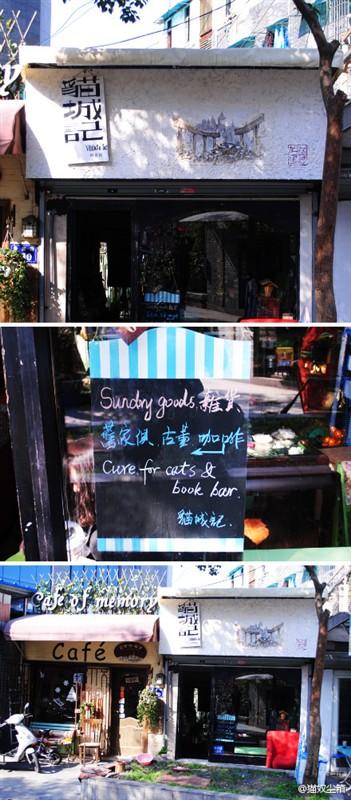 貓城記
Sundry goods.雜貨
舊家俱.古董 咖啡
Cure for cats &
book bar.
貓城記.
Cafe of memory
Café
貓城記
@猫奴尘箱